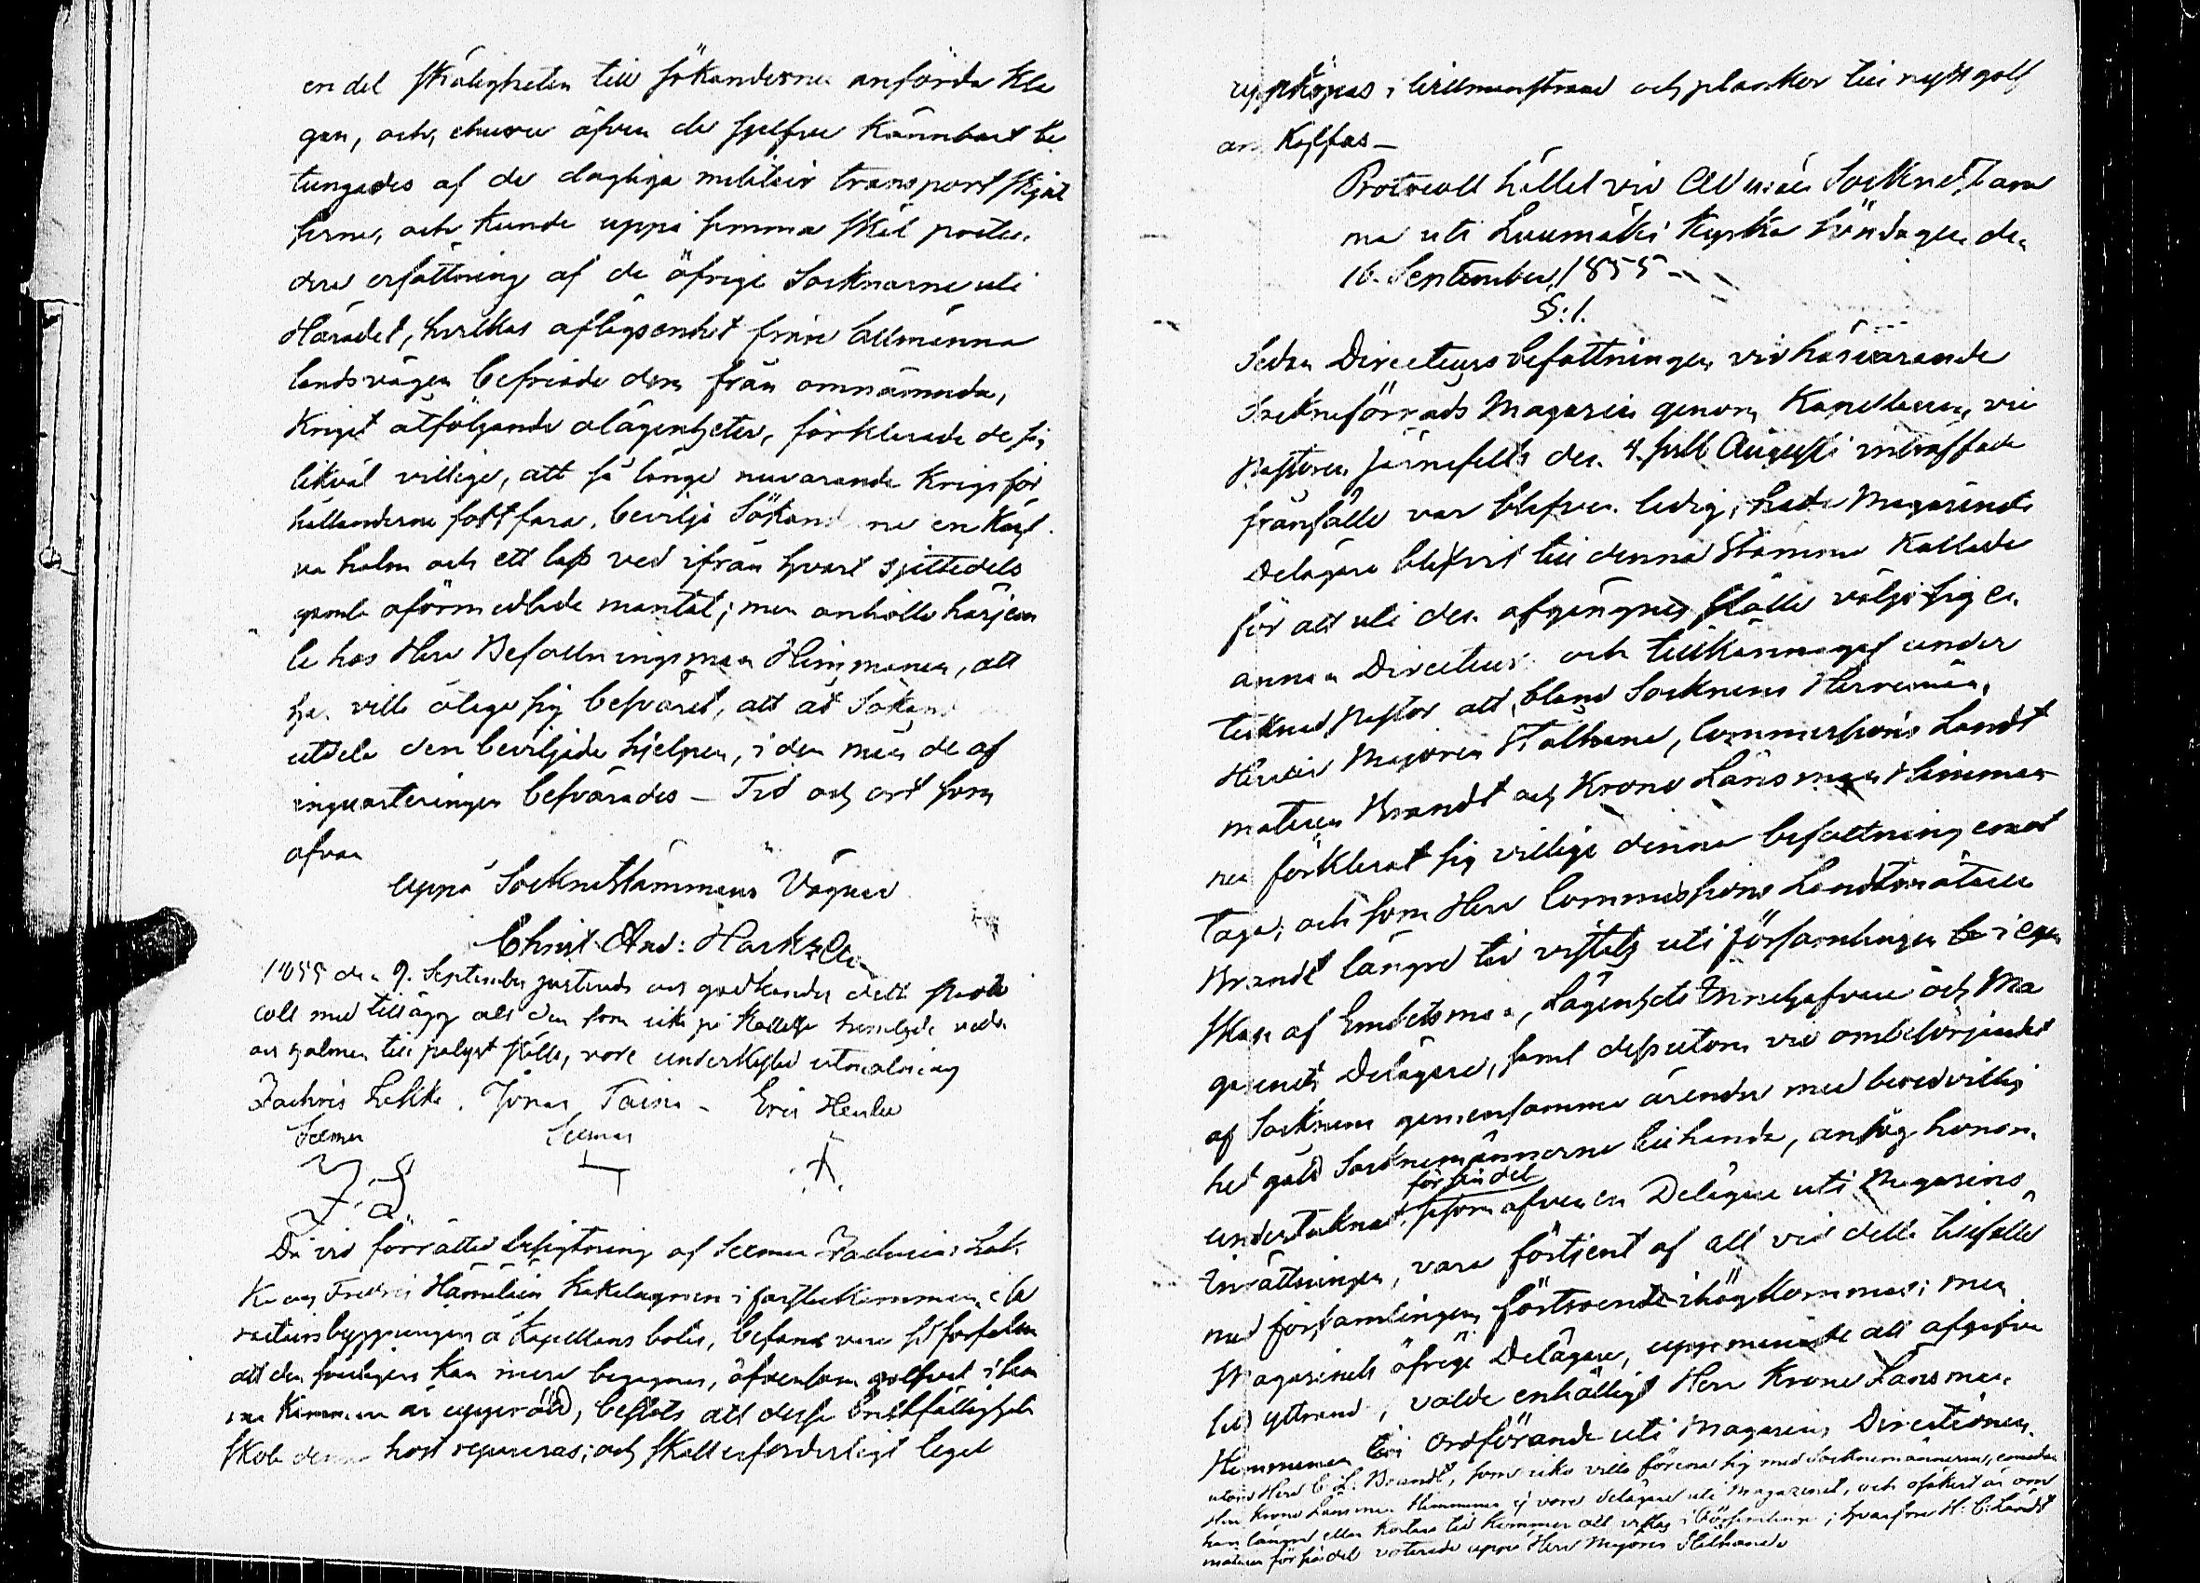 en del skäligheten till sökanderne anförda kla
gan, och, churu äfven de sjelfve kännbart be
tungades af de dagliga militair transport skjut
serne, och kunde uppå samma skäl præten
dera ersättning af de öfrige Socknarne uti
Häradet, hvilkas aflägsenhet från allmänna
landsvägen befriade dem från omnämnda,
kriget åtföljande olägenheter, förklarade de sig
likväl villige, att så länge nuvarande krigsför
hållanderne fortfara, bevilja Sökand ne en kärf
va halm och ett lass ved ifrån hvart sjettedels
gamla oförmedlade mantal; men anhöllo härjem
te hos Herr Befallningsman Himmanen, att
han ville ålaga sig besväret, att åt Sökan
utdela den beviljade hjelpen, i den mån de af
inquarteringen besvärades – Tid och ort som
ofvan
Uppå Sockenstämmans Vägnar
Christ. And: Horkzéen
1855 den 9. September justerades och godkändes detta proto
coll med tillägg att den som icke på kallelse framlägde veden
och halmen till pålyst ställe, vore underkastad utmätning
Zachris Lakka. Jonas Taina – Eric Heulu
Seeman Seeman
Z. L.
Då vid förrättad besigtning af Seeman Zachris Lak
ka och Fredric Hämäläin kakelugnen i farstukammaren i ka
racteersbyggningen å Kapellans bolet, befans vara så förfallen
att den foreligen kan mera begagnas, äfvensom golfvet i sam
ma kammare är uppruttnad, beslöts att dessa bristfälligheter
skola denna höst repareras; och skall erforderligt tegel
uppköpas i Willmanstrand och plankor till nytt golf
an kylfas –
Protocoll hållet vid Allmän Sockne Stäm
ma uti Luumäki Kyrka Söndagen den
16. September 1855 –
§: 1.
Sedan Directeurs befattningen vid härvarande
Socknförråds Magasin genom Kapellanen, vice
Pastoren Järnefelts den 4. sistl. Augusti inträffade
frånfälle var blefven ledig, hade Magasinets
Delägare blifvit till denna Stämma kallade
för att uti den afgångnes ställe välja sig en
annan Directeur och tillkännagaf under
tecknad Pastor att, bland Socknens Herremän,
Herrar Majoren Stålhane, Commissions Landt
mätaren Brandt och Krono Länsman Himma
nen förklarat sig villige denna befattning emot
taga; och som Herr Commissions Landtmätare
Brandt längre tid vistats uti församlingen i egen
skap af Embetsman, Lägenhets Innehafvare och Ma
gasinets Delägare, samt dessutom vid ombesörjandet
af Socknens gemensamma ärenden med beredvillig
het gått Socknemännerne tillhanda, ansåg honom
för sin del
undertecknad, såsom äfven en Delägare uti Magasins
Inrättningen, vara förtjent af att vid detta tillfälle
med församlingens förtroende ihågkommas; men
Magasinets öfrige Delägare, uppmanade att afgifva
sitt yttrande, valde enhälligt Herr Krono Länsman
Himmanen till Ordförande uti Magasins Directionen
utom Herr C. L. Brandt, som icke ville förena sig med Socknemännerne, emedan
Herr Krono Länsman Himmanen ej vore delägare uti Magazinet, och osäkert är om
han längre eller kortare tid kommer att vistas i församlingen; hvarföre H: C: Landt
mätaren för sin del voterade uppå Herr Majoren Stålhane